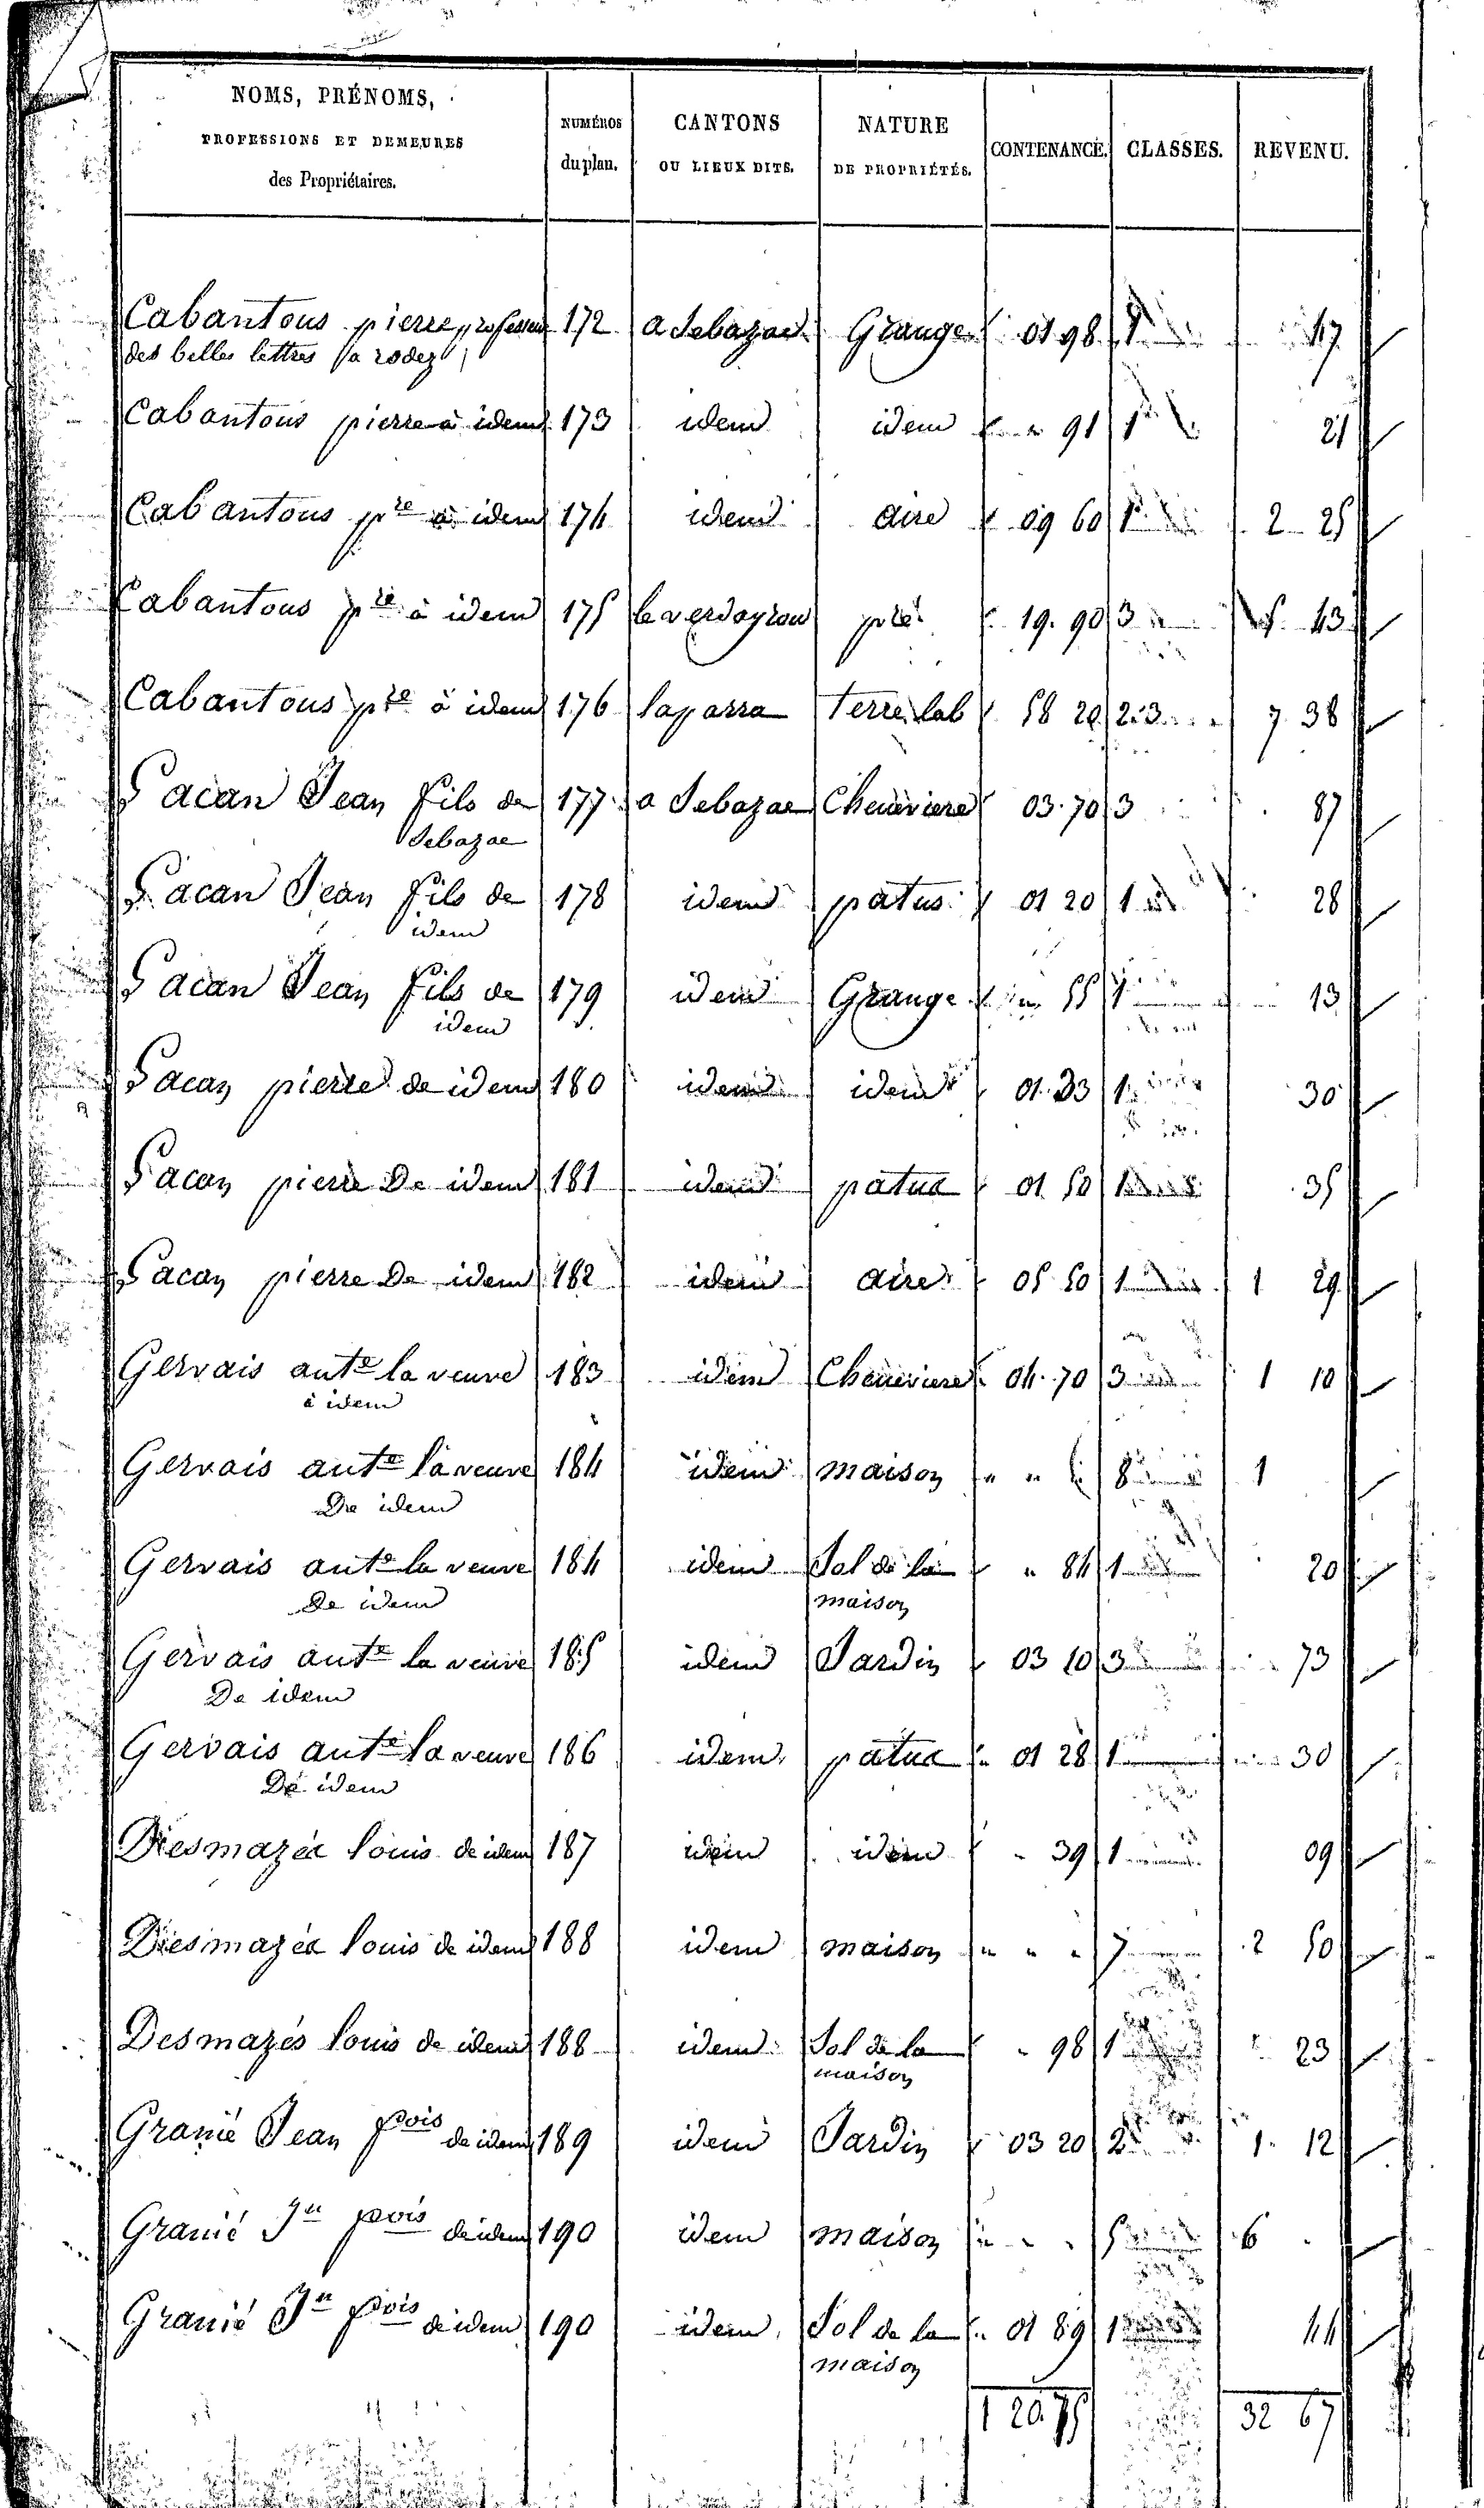 NOMS, PRÉNOMS,
PROFESSIONS ET DEMEURES
des Propriétaires.
NUMÉROS
du plan.
CANTONS
OU LIEUX DITS.
NATURE
DE PROPRIÉTÉS.
CONTENANCE.
CLASSES.
REVENU.
Cabantous pierre professeur 172 a Sebazac Grange 01 98 1 47
des belles lettres a rodez
Cabantous pierre à idem 173 idem idem " 91 1 21
Cabantous pre à idem 174 idem aire 09 60 1 2 25
Cabantous pre à idem 175 le verdoyrou pré 19. 90 3 5 43
Cabantous pre à idem 176 laparra terre lab 58 20 2.3 7 38
Lacan Jean fils de 177 a Sebazac Cheneviere 03.70 3 87
Sebazac
Lacan Jean fils de 178 idem patus 01 20 1 28
idem
Lacan Jean fils de 179 idem Grange " 55 1 13
idem
Lacan pierre de idem 180 idem idem 01.33 1 30
Lacan pierre De idem 181 idem patus 01 50 1 35
Lacan pierre De idem 182 idem aire 05 50 1 1 29
Gervais ante la veuve 183 idem Cheneviere 04.70 3 1 10
à idem
Gervais ante la veuve 184 idem maison " " " 8 1
De idem
Gervais ante la veuve 184 idem Sol de la " 84 1 20
De idem maison
Gervais ante la veuve 185 idem Jardin 03 10 3 73
De idem
Gervais ante la veuve 186 idem patus 01 28 1 30
De idem
Desmazés louis de idem 187 idem idem " 39 1 09
Desmazés louis de idem 188 idem maison " " " 7 2 50
Desmazés louis de idem 188 idem Sol de la " 98 1 23
maison
Granié Jean fçois de idem 189 idem Jardin 03 20 2 1 12
Granié Jn fçois de idem 190 idem maison " " " 5 6
Granié Jn fçois de idem 190 idem Sol de la 01 89 1 44
maison
1 20.75 32 67